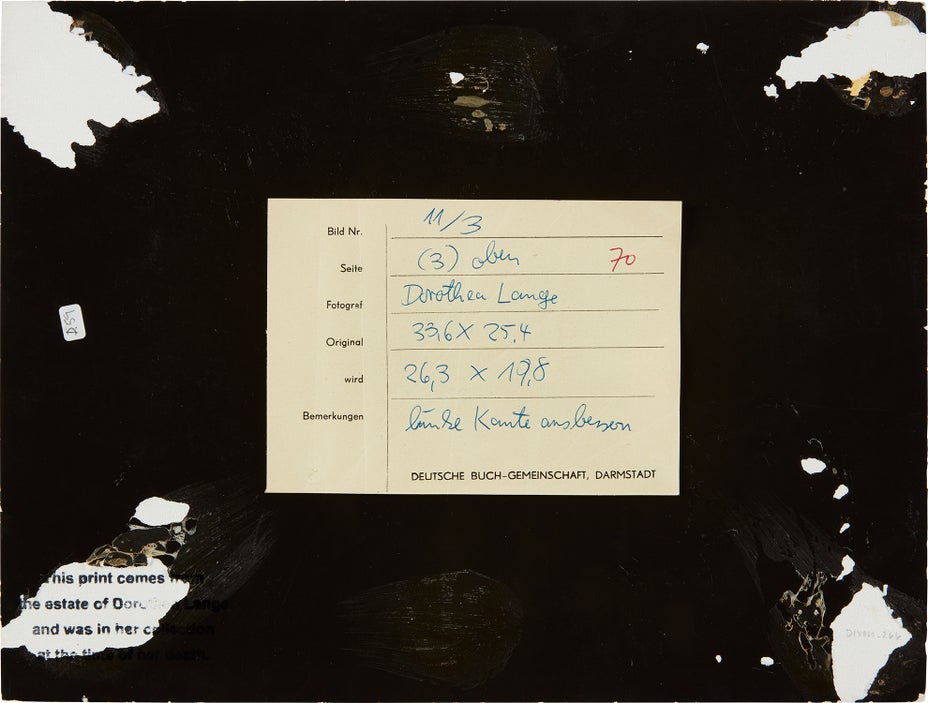 Bild Nr. 11/3
Seite (3) oben 70
Fotograf Dorothea Lange
Original 33,6 X 25,4
wird 26,3 X 19,8
Bemerkungen linke Kante ausbessern
DEUTSCHE BUCH-GEMEINSCHAFT, DARMSTADT
D59
This print comes from
the estate of Dorothea Lange
and was in her collection
at the time of her death.